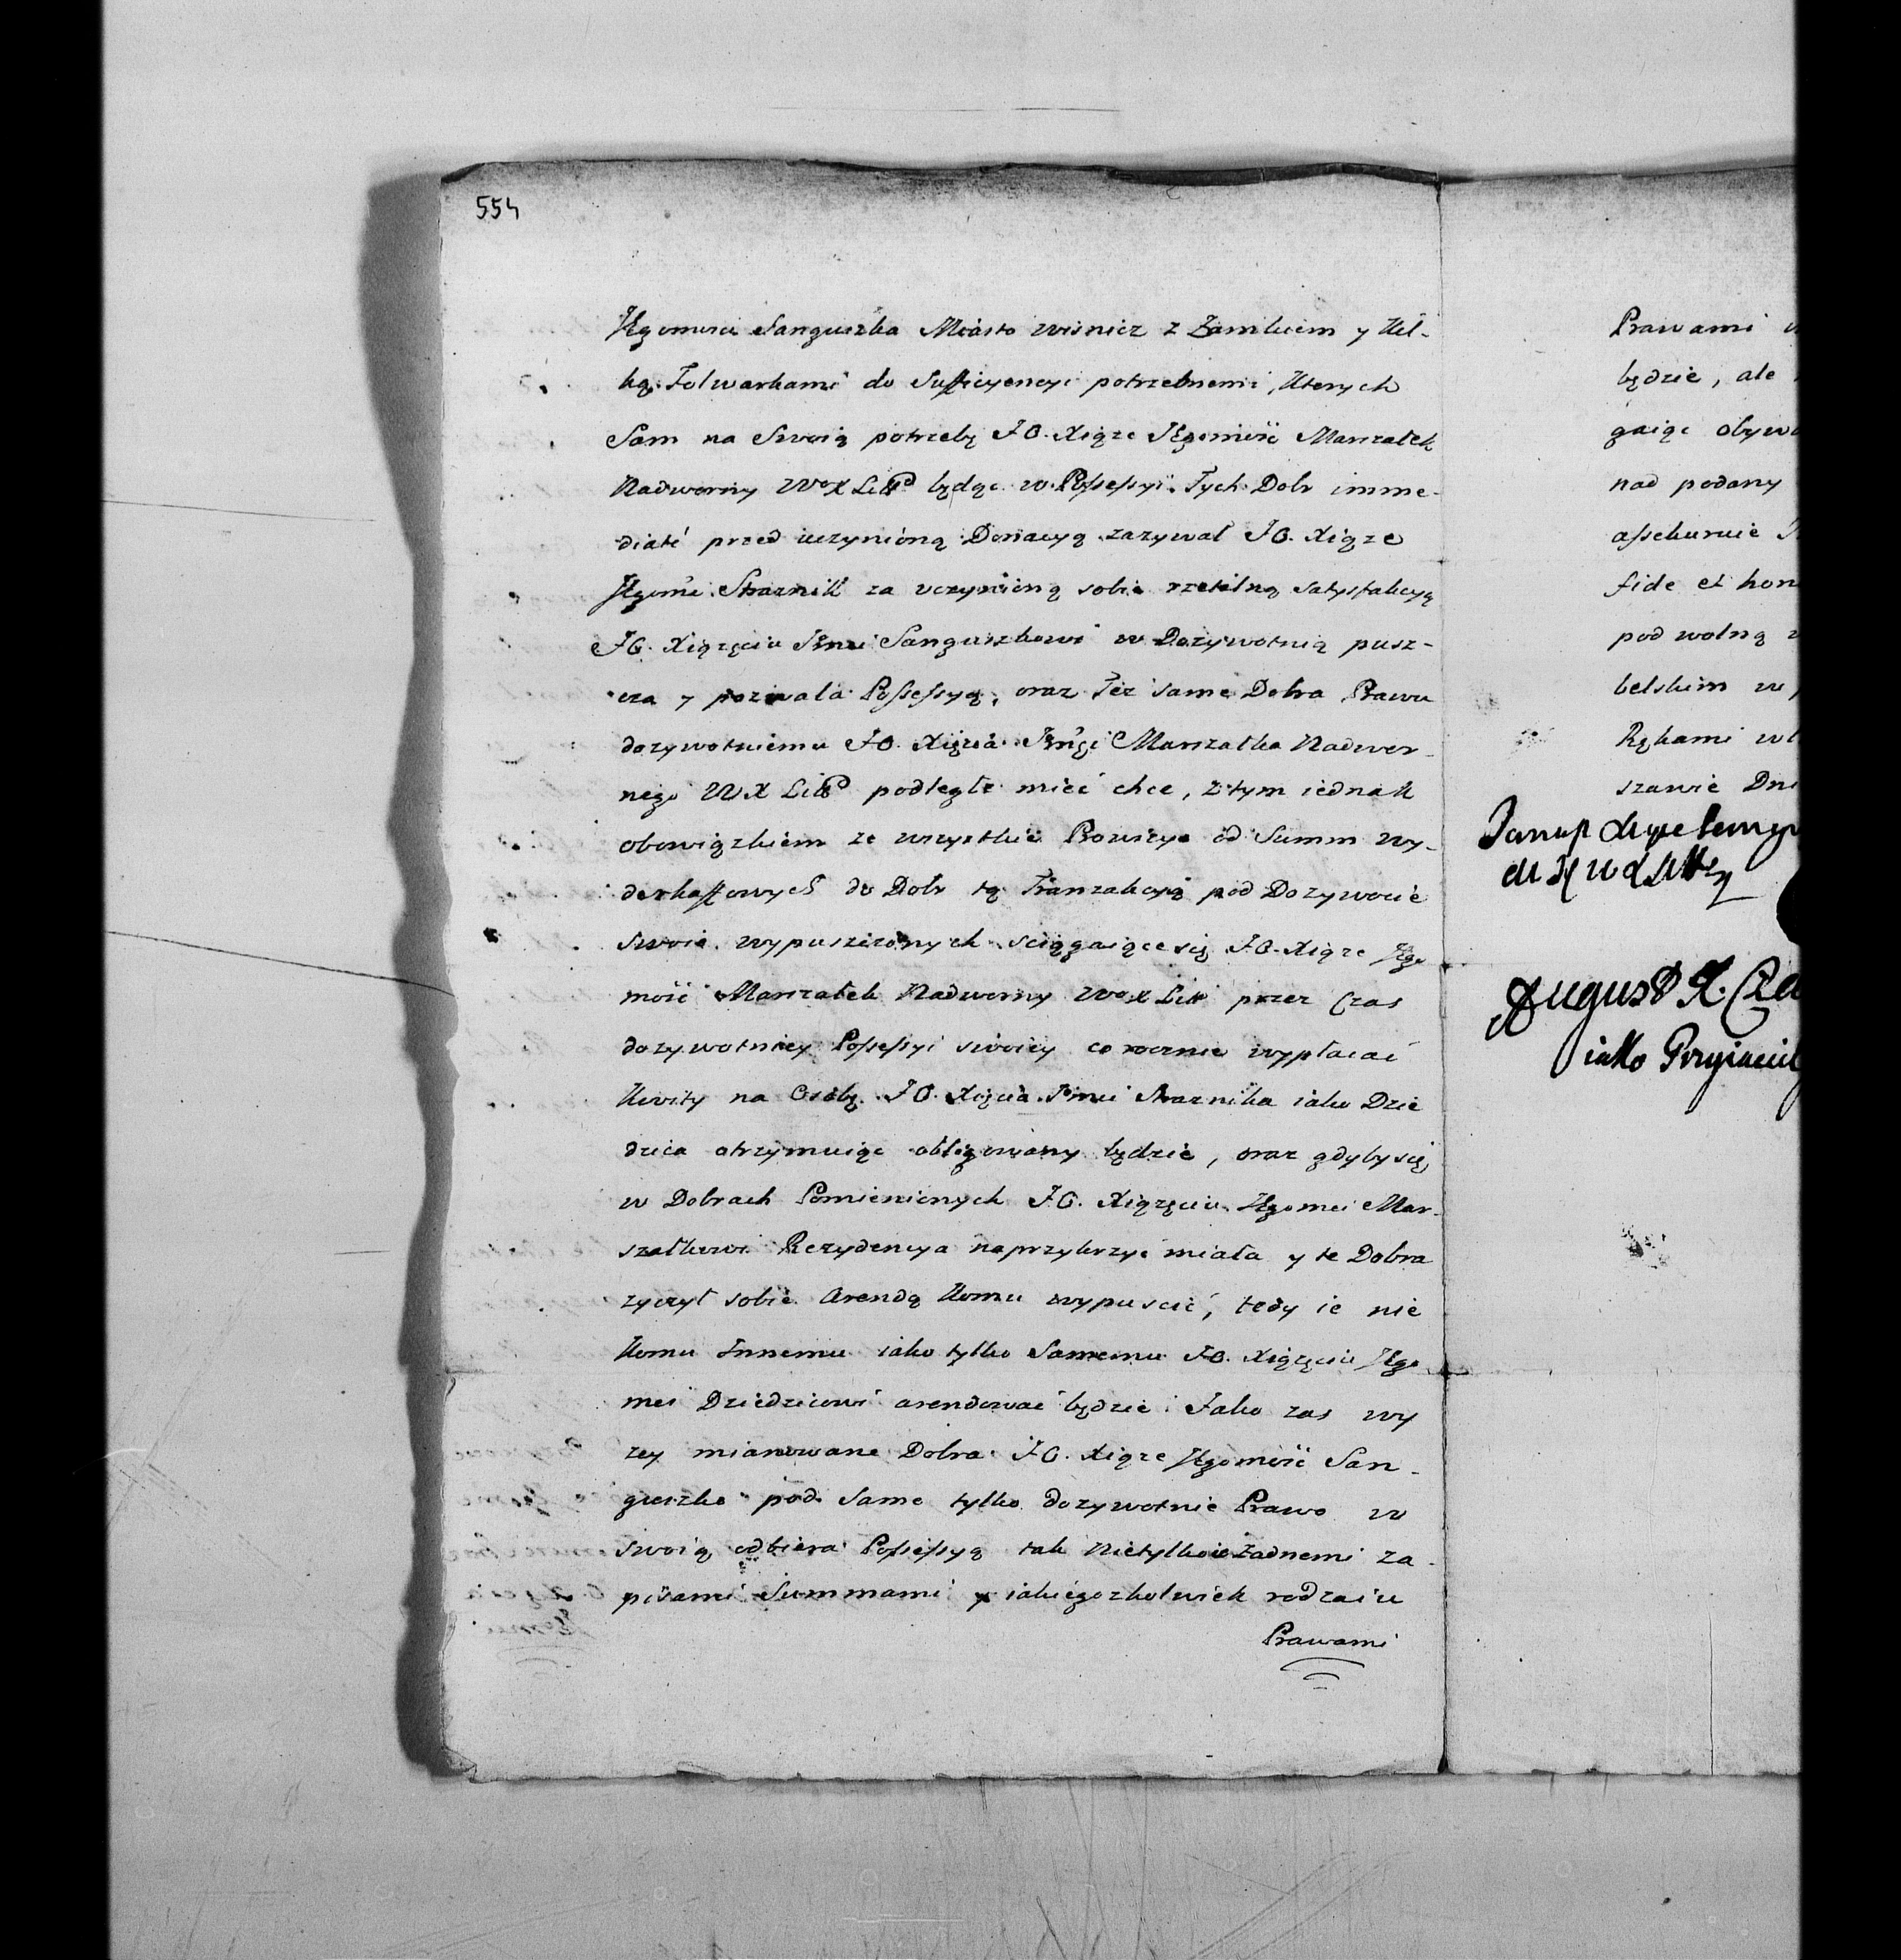 554
JEgomosci Sanguszka Miasto Wisnicz z Zamkiem y kil-
ką Folwarkami do Sufficyencyi potrzebnemi, ktorych
Sam na Swoią potrzebę J.O. Xiąze JEgomość Marszałek
Nadworny W X Litt będąc w Possessyi Tych Dobr imme-
diaté przed uczynioną Donacyą zazywał J.O. Xiąze
JEgomć Straznik za uczynioną sobie rzetelną satysfakcyą
J.O. Xiązęciu Jmci Sanguszkowi w Dozywotnią pusz-
cza y pozwala Possessyą, oraz Tez same Dobra Prawu
dozywotniemu J.O. Xięcia Jmci Marszałka Nadwor-
nego W X Litt podległe mieć chce, z tym iednak
obowiązkiem ze wszystkie Prowizye od Summ wy-
derkaffowych do Dobr tą Tranzakcyą pod Dozywocie
swoie wypuszczonych sciągaiące się J.O. Xiąze JEgo
mość Marszałek Nadworny W X Litt przez Czas
dozywotniey Possessyi swoiey co rocznie wypłacać
kwity na Osobę J.O. Xięcia Jmci Straznika iako Dzie
dzica otrzymuiąc obligowany będzie, oraz gdyby się
w Dobrach Pomienionych J.O. Xiązęciu JEgomci Mar-
szałkowi Rezydencya naprzykrzyc miała y te Dobra
zyczył sobie Arendą komu wypuscić, tedy ie nie
komu Innemu iako tylko Samemu J.O. Xiązęciu JEgo
mci Dziedzicowi arendować będzie. Jako zas wy
zey mianowane Dobra J.O. Xiąze JEgomość San-
guszko pod same tylko dozywotnie Prawo w
swoią odbiera Possessyą tak nietylko ie Zadnemi za-
pisami Summami y iakiegozkolwiek rodzaiu
Prawami
Prawami
będzie, ale
gaiąc obyw
nad podany
assekuruie
fide et hon
pod wolną
belskim w
Rękami wł
szawie Dni
August X. Cza
iako Przyiaciel